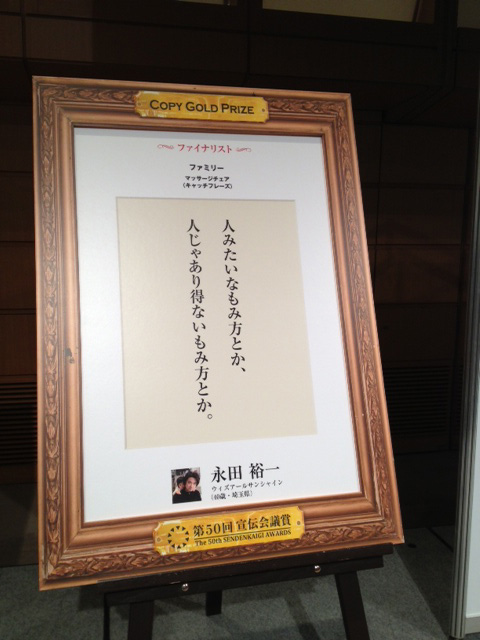 COPY GOLD PRIZE
ファイナリスト
ファミリー
マッサージチェア
(キャッチフレーズ)
人みたいなもみ方とか、
人じゃあり得ないもみ方とか。
永田 裕一
ウィズアールサンシャイン
(40歳・埼玉県)
第50回 宣伝会議賞
The 50th SENDENKAIGI AWARDS